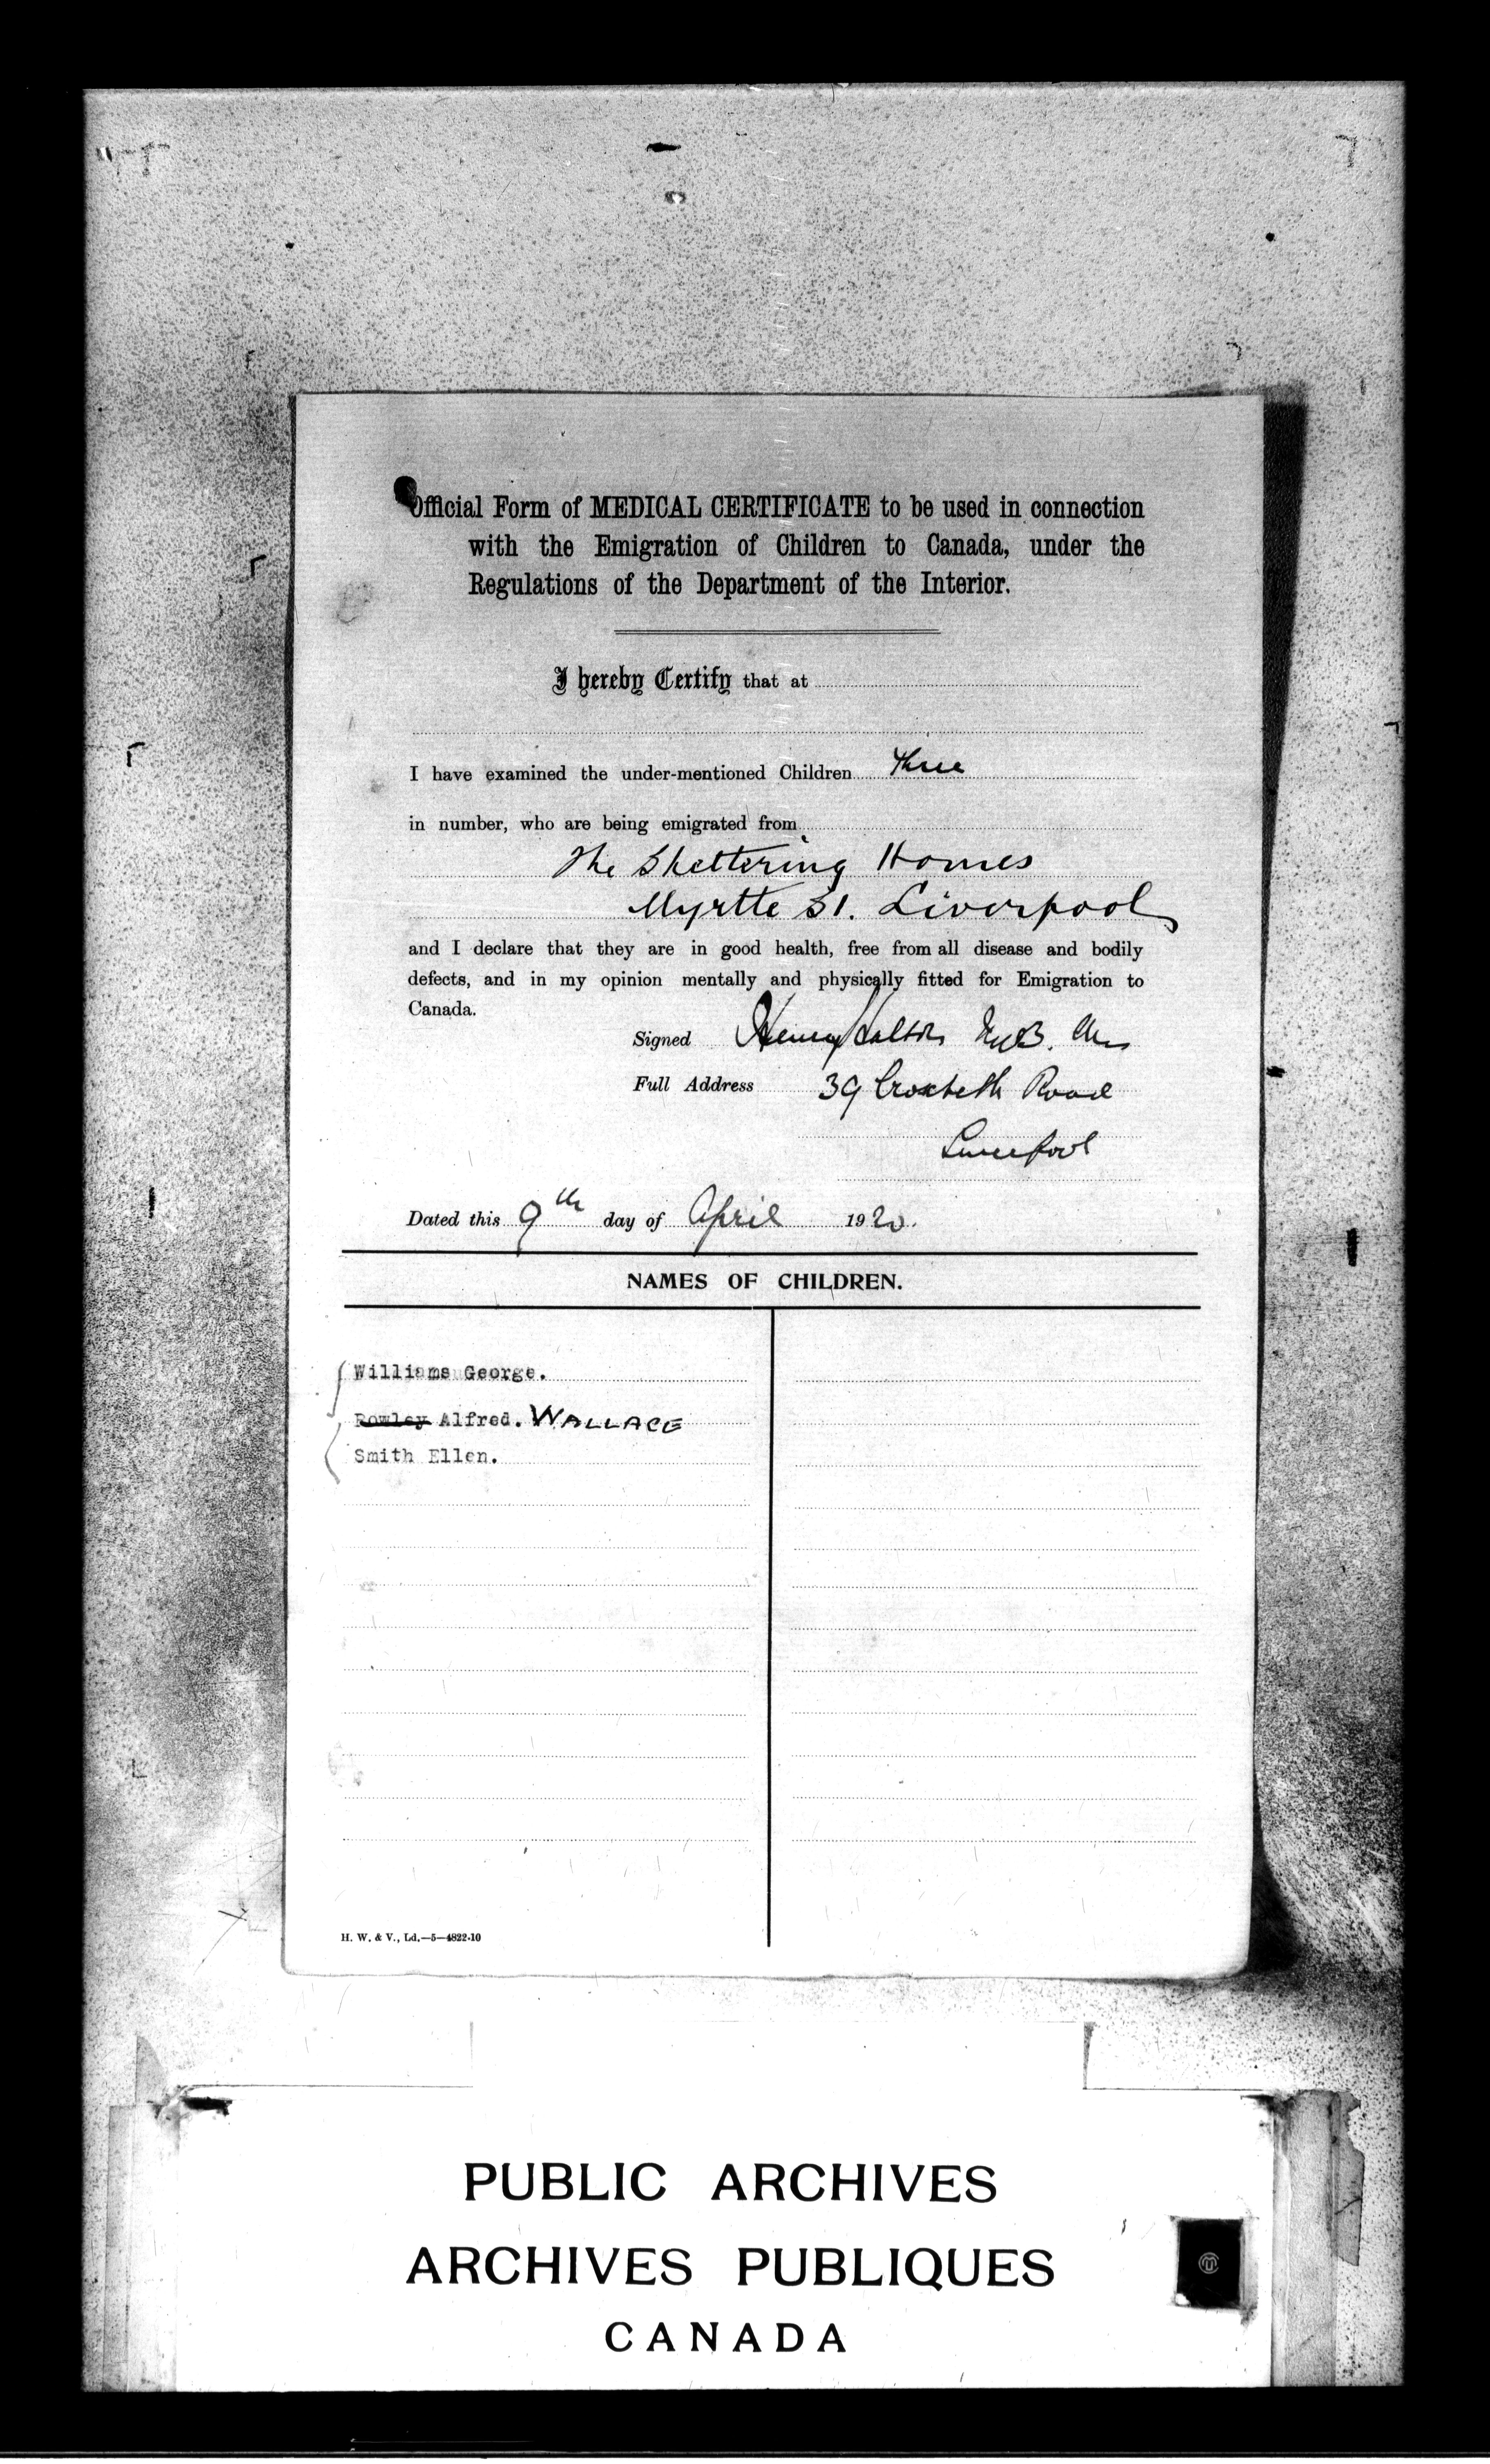 Official Form of MEDICAL CERTIFICATE to be used in connection
with the Emigration of Children to Canada, under the
Regulations of the Department of the Interior.
I hereby Certify that at
I have examined the under-mentioned Children three
in number, who are being emigrated from
The Sheltering Homes
Myrtle St. Liverpool
and I declare that they are in good health, free from all disease and bodily
defects, and in my opinion mentally and physically fitted for Emigration to
Canada.
Signed Henry M.B.
Full Address 39 Croxteth Road
Liverpool
Dated this 9th day of April 1920.
NAMES OF CHILDREN.
Williams George.
Rowley Alfred. WALLACE
Smith Ellen.
H. W. & V., Ld.—5—4822-10
PUBLIC ARCHIVES
ARCHIVES PUBLIQUES
CANADA